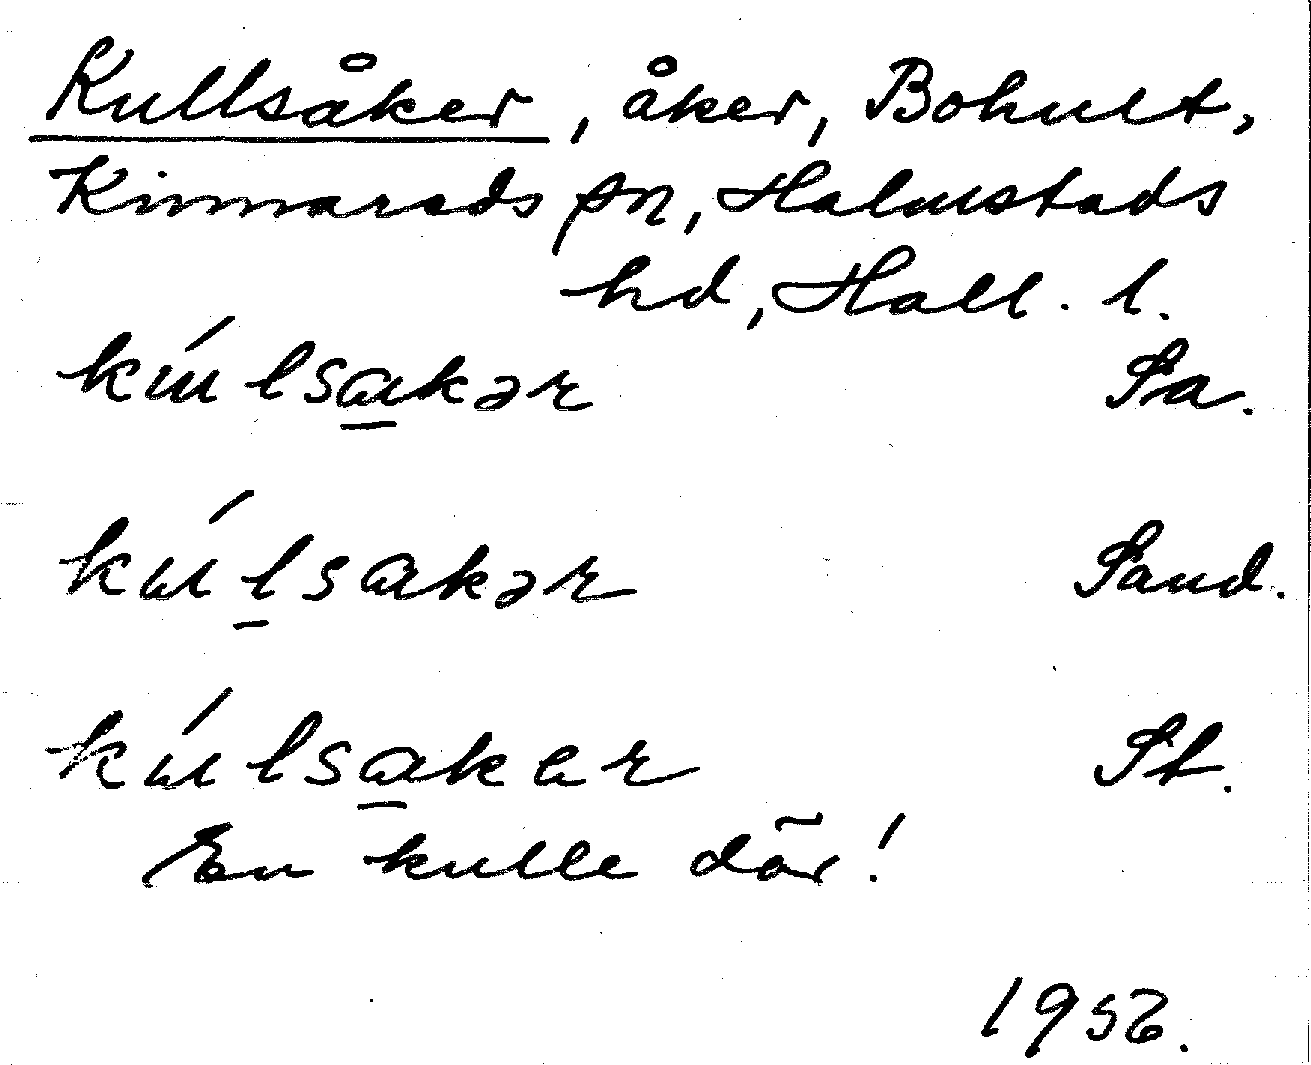 Kullsåker, åker, Bohult,
Kinnareds sn, Halmstads
hd, Hall. l.
kúlsakər Sa.
kúlsakər Sand.
kúlsakar St.
En kulle där!
1952.